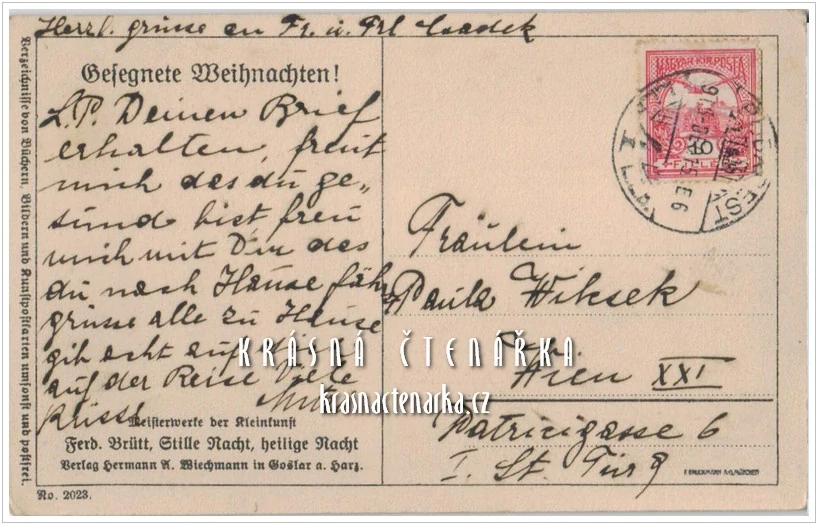 Herzl. grüsse an Fr. u. Frl
Gesegnete Weihnachten!
L.P. Deinen Brief
erhalten, freut
mich das du ge„
sund bist, freu
mich mit Dir das
du nach Hause fähr
grüsse alle zu Hause
gib acht auf
auf der Reise Viele
Küsse
Meisterwerke der Kleinkunst
Ferd. Brütt, Stille Nacht, heilige Nacht
Verlag Hermann A. Wiechmann in Goslar a. Harz.
No. 2023.
Verzeichnisse von Büchern, Bildern und Kunstpostkarten umsonst und postfrei.
MAGYAR KIR. POSTA
BUDAPEST
Fräulein
Paula Wiksek
Wien XXI
Patrizigasse 6
I. St. Tür 9
F. BRUCKMANN A.G. MÜNCHEN
KRÁSNÁ ČTENÁŘKA
krasnactenarka.cz